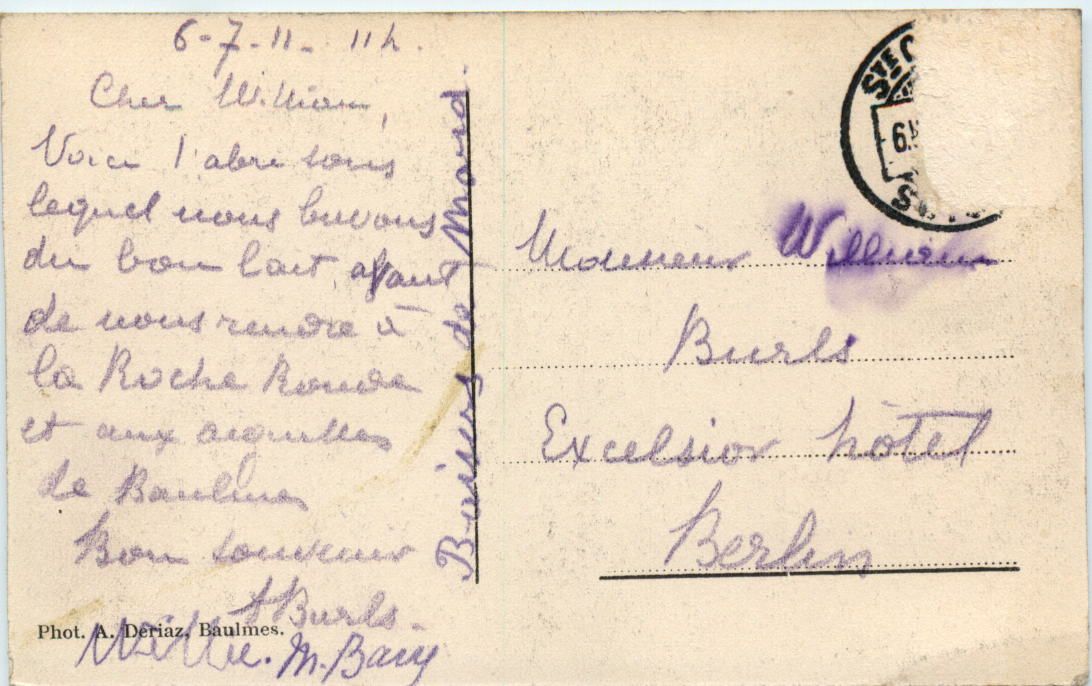 6-7-11- 11h.
Cher William,
Voici l'abri sous
lequel nous buvons
du bon lait, avant
de nous rendre à
la Roche Ronde
et aux aiguilles
de Baulmes
Bon souvenir
ABurls.
Willie. M. Bary
Baisers de Maud
Phot. A. Deriaz, Baulmes.
Monsieur William
Burls
Excelsior hôtel
Berlin
STE C
6.V